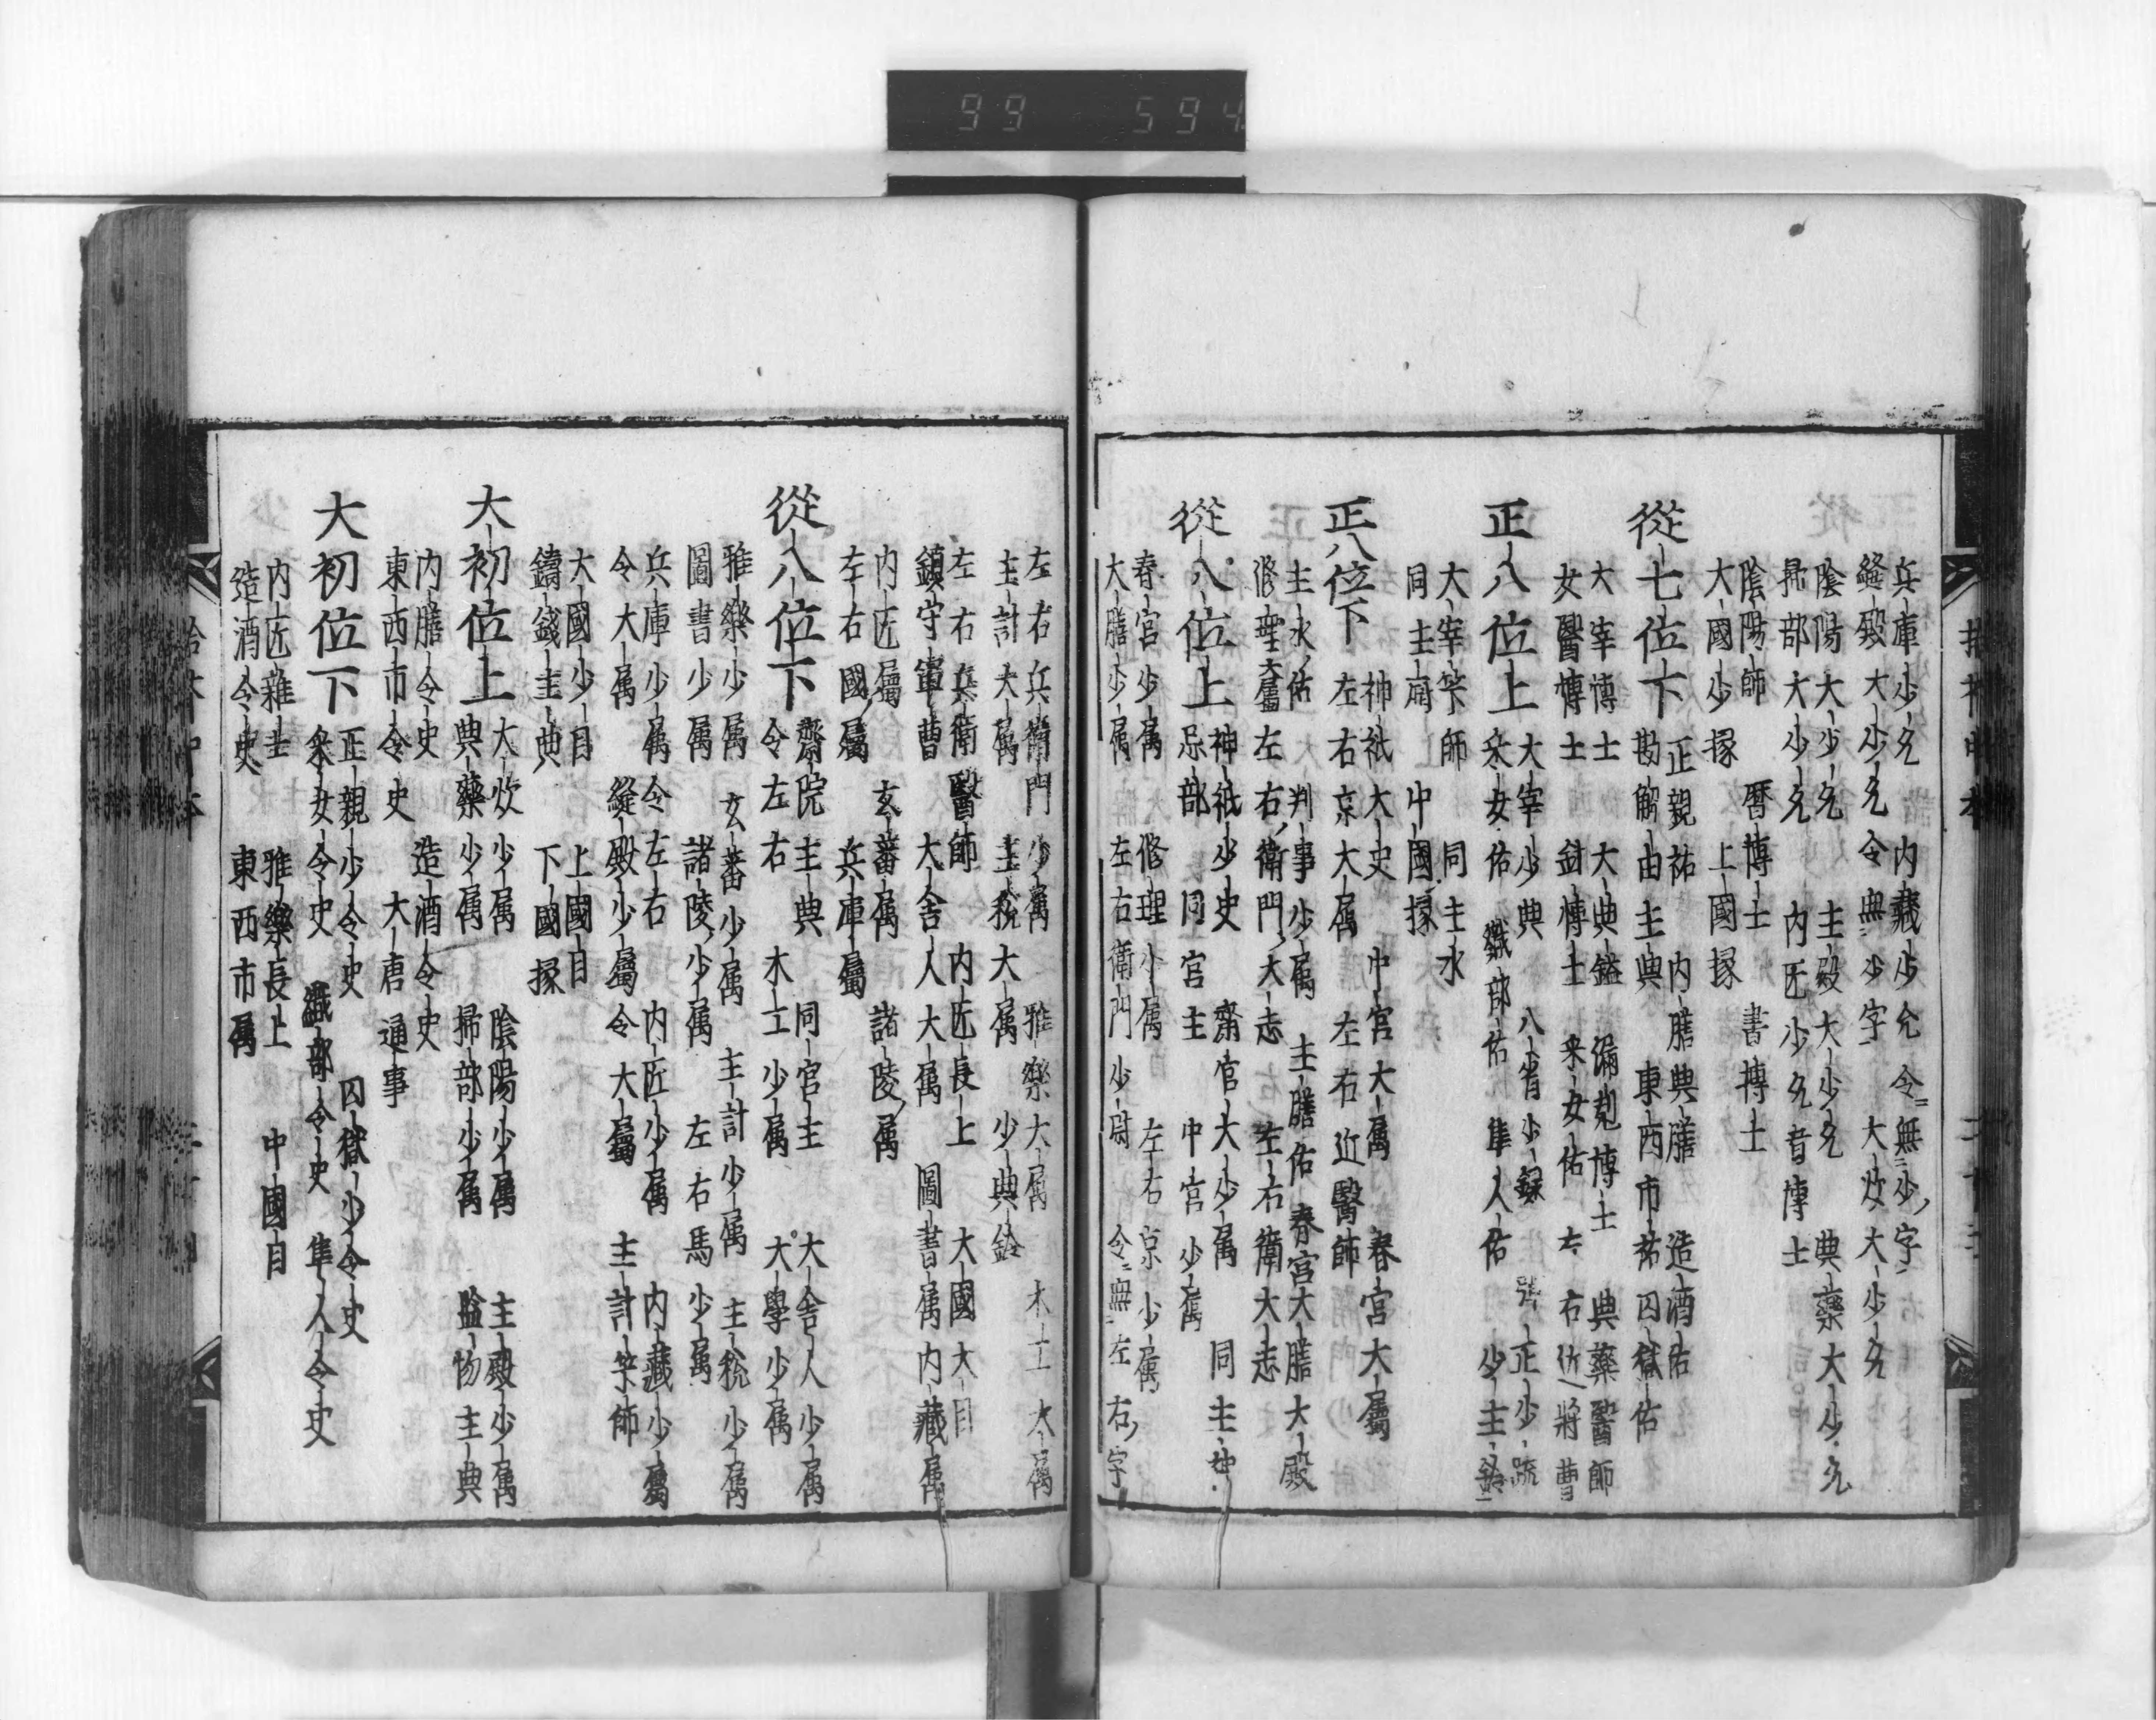 99 594
兵庫少允 内藏少允 令無少字
縫殿大少允 令無少字 大炊大少允
陰陽大少允 主殿大少允 典藥大少允
掃部大少允 内匠少允 音博士
陰陽師 暦博士 書博士
大國少掾 上國掾
從七位下 正親祐 内膳典膳 造酒佑
勘解由主典 東西市祐 囚獄佑
大宰博士 大典鎰 漏剋博士 典藥醫師
女醫博士 針博士 采女佑 左右近將曹
正八位上 大宰少典 八省少録 彈正少疏
采女佑 織部佑 隼人佑 少主鈴
大宰笇師 同主水
同主厨 中國掾
正八位下 神祇大史 中宮大属 春宮大屬
左右京大属 左右近醫師
主水佑 判事少属 主膳佑 春宮大膳大殿
修理大屬 左右衛門大志 左右衛大志
從八位上 神祇少史 齋宮大少属 同主神
忌部 同宮主 中宮少属
春宮少属 修理少属 左右京少属
大膳少属 左右衛門少尉 令無左右字
左右兵衛門少属 雅樂大属 木工大属
主計大属 主税大属 少典鈴
左右兵衛醫師 内匠長上 大國大目
鎮守軍曹 大舎人大属 圖書属 内藏属
内匠屬 玄蕃属 諸陵属
左右國屬 兵庫屬
從八位下 齋院主典 同宮主 大舎人少属
令左右 木工少属 大學少属
雅樂少属 玄蕃少属 主計少属 主税少属
圖書少属 諸陵少属 左右馬少属
兵庫少属 令左右 内匠少属 内藏少屬
令大属 縫殿少屬 令大屬 主計笇師
大國少目 上國目
鑄錢主典 下國掾
大初位上 大炊少属 陰陽少属 主殿少属
典藥少属 掃部少属 監物主典
内膳令史 造酒令史
東西市令史 大唐通事
大初位下 正親少令史 囚獄少令史
采女令史 織部令史 隼人令史
内匠雜士 雅樂長上 中國目
造酒令史 東西市属